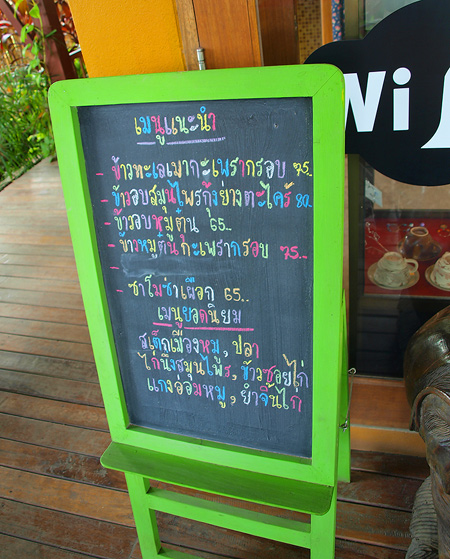 เมนูแนะนำ
- ข้าวทะเลเมากะเพรากรอบ 75..
- ข้าวอบสมุนไพรกุ้งย่างตะไคร้ 80.
- ข้าวอบหมูตุ๋น 65..
- ข้าวหมูตุ๋นกะเพรากรอบ 75...
- ซาโมซ่าเผือก 65..
เมนูยอดนิยม
สเต็กเมืองหมู, ปลา
ไก่นึ่งสมุนไพร, ข้าวซอยไก่
แกงอ่อมหมู, ยำจิ้นไก่
Wi